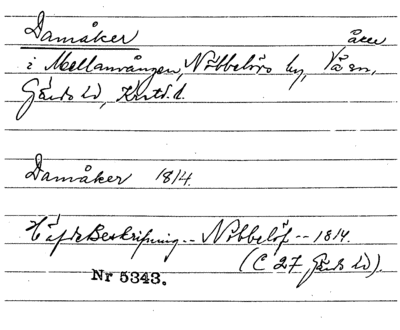 Damåker åker
i Mellanvången, Nöbbelövs by, Vä sn,
Gärds hd, Krist. l.
Damåker 1814.
Häfde Beskrifning -- Nöbbelöf -- 1814.
(C 27 Gärds hd).
Nr 5343.